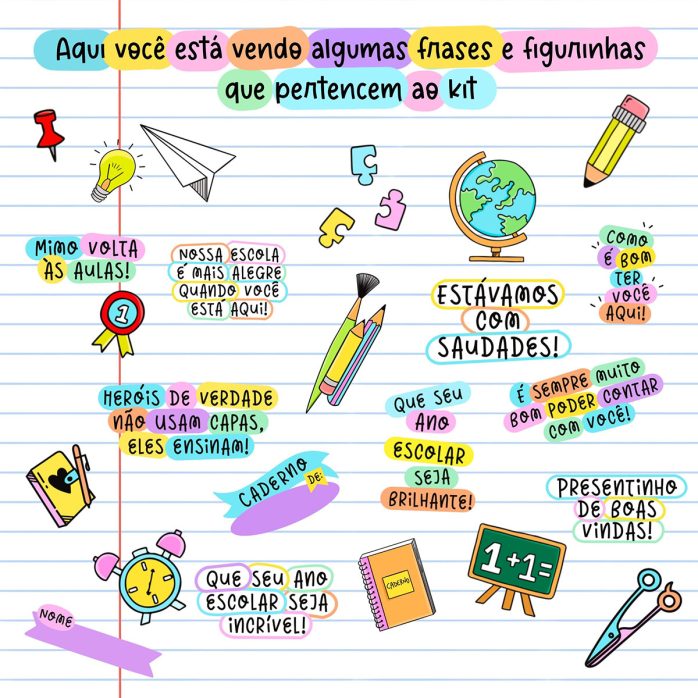 Aqui você está vendo algumas frases e figurinhas
que pertencem ao kit
MIMO VOLTA
ÀS AULAS!
NOSSA ESCOLA
É MAIS ALEGRE
QUANDO VOCÊ
ESTÁ AQUI!
COMO
É BOM
TER
VOCÊ
AQUI!
1
ESTÁVAMOS
COM
SAUDADES!
HERÓIS DE VERDADE
NÃO USAM CAPAS,
ELES ENSINAM!
QUE SEU
ANO
ESCOLAR
SEJA
BRILHANTE!
É SEMPRE MUITO
BOM PODER CONTAR
COM VOCÊ!
CADERNO
DE:
PRESENTINHO
DE BOAS
VINDAS!
QUE SEU ANO
ESCOLAR SEJA
INCRÍVEL!
CADERNO
1+1=
NOME